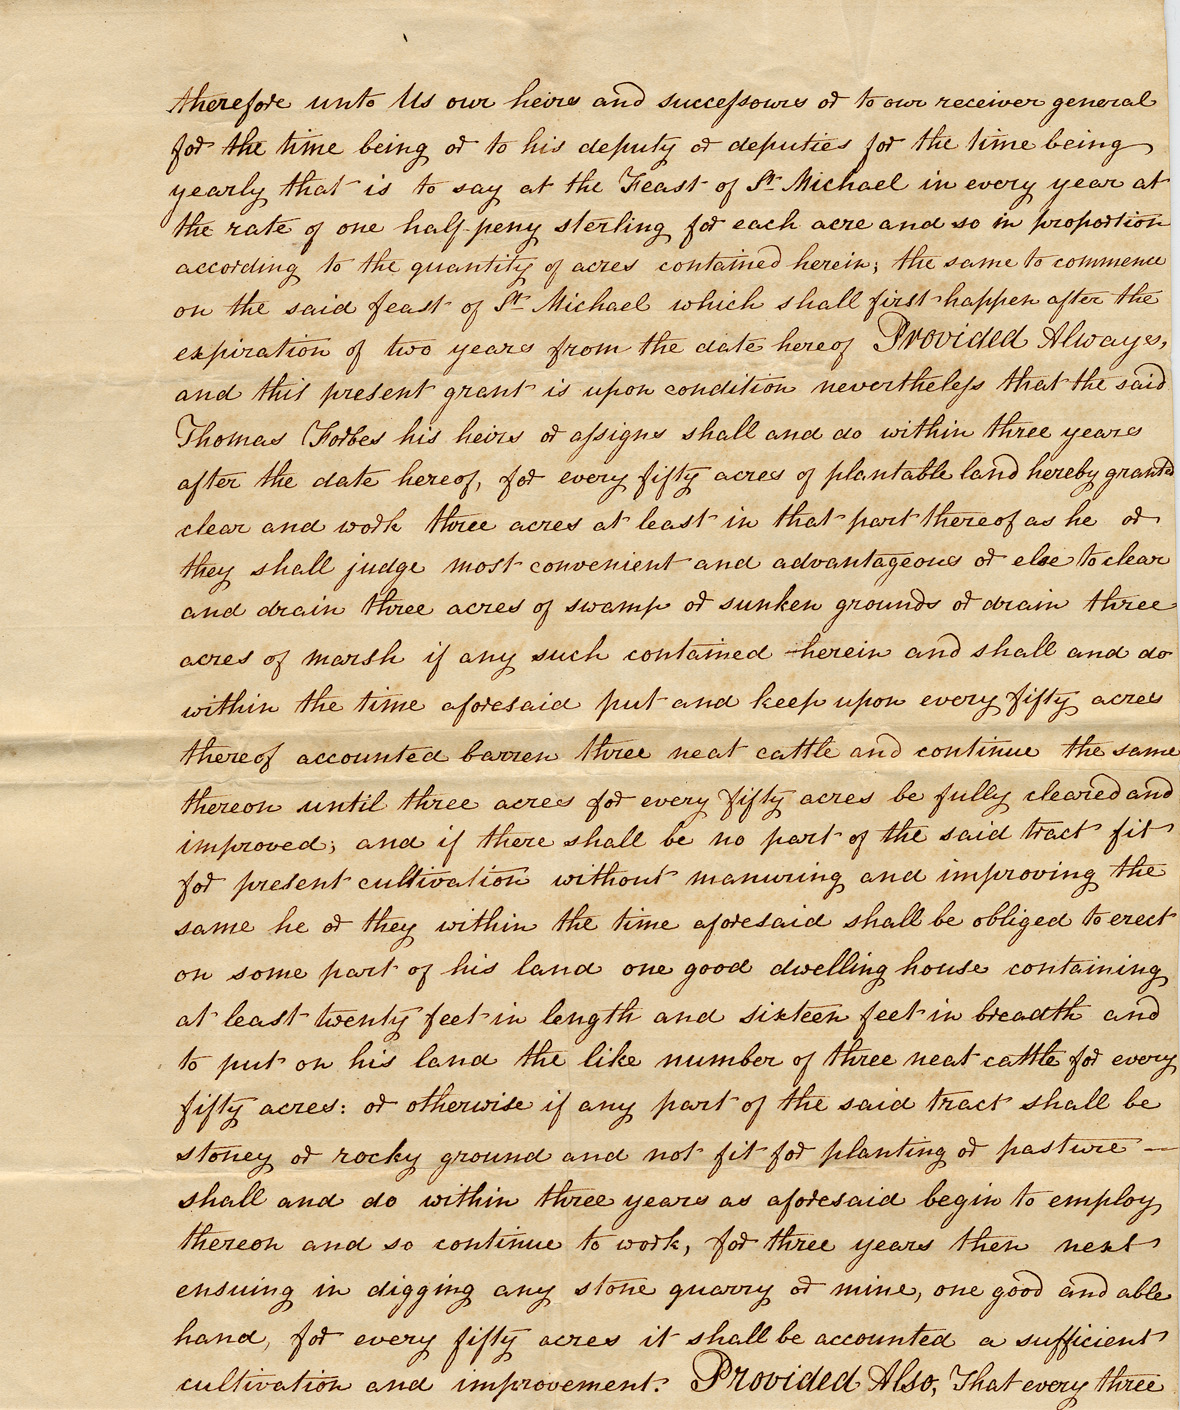 therefore unto Us our heirs and successours or to our receiver general
for the time being or to his deputy or deputies for the time being
yearly that is to say at the Feast of St. Michael in every year at
the rate of one half-peny sterling for each acre and so in proportion
according to the quantity of acres contained herein; the same to commence
on the said feast of St. Michael which shall first happen after the
expiration of two years from the date hereof Provided Always,
and this present grant is upon condition nevertheless that the said
Thomas Forbes his heirs or assigns shall and do within three years
after the date hereof, for every fifty acres of plantable land hereby granted
clear and work three acres at least in that part thereof as he or
they shall judge most convenient and advantageous or else to clear
and drain three acres of swamp or sunken grounds or drain three
acres of marsh if any such contained herein and shall and do
within the time aforesaid put and keep upon every fifty acres
thereof accounted barren three neat cattle and continue the same
thereon until three acres for every fifty acres be fully cleared and
improved; and if there shall be no part of the said tract fit
for present cultivation without manuring and improving the
same he or they within the time aforesaid shall be obliged to erect
on some part of his land one good dwelling house containing
at least twenty feet in length and sixteen feet in breadth and
to put on his land the like number of three neat cattle for every
fifty acres: or otherwise if any part of the said tract shall be
stoney or rocky ground and not fit for planting or pasture —
shall and do within three years as aforesaid begin to employ
thereon and so continue to work, for three years then next
ensuing in digging any stone quarry or mine, one good and able
hand, for every fifty acres it shall be accounted a sufficient
cultivation and improvement. Provided Also, That every three